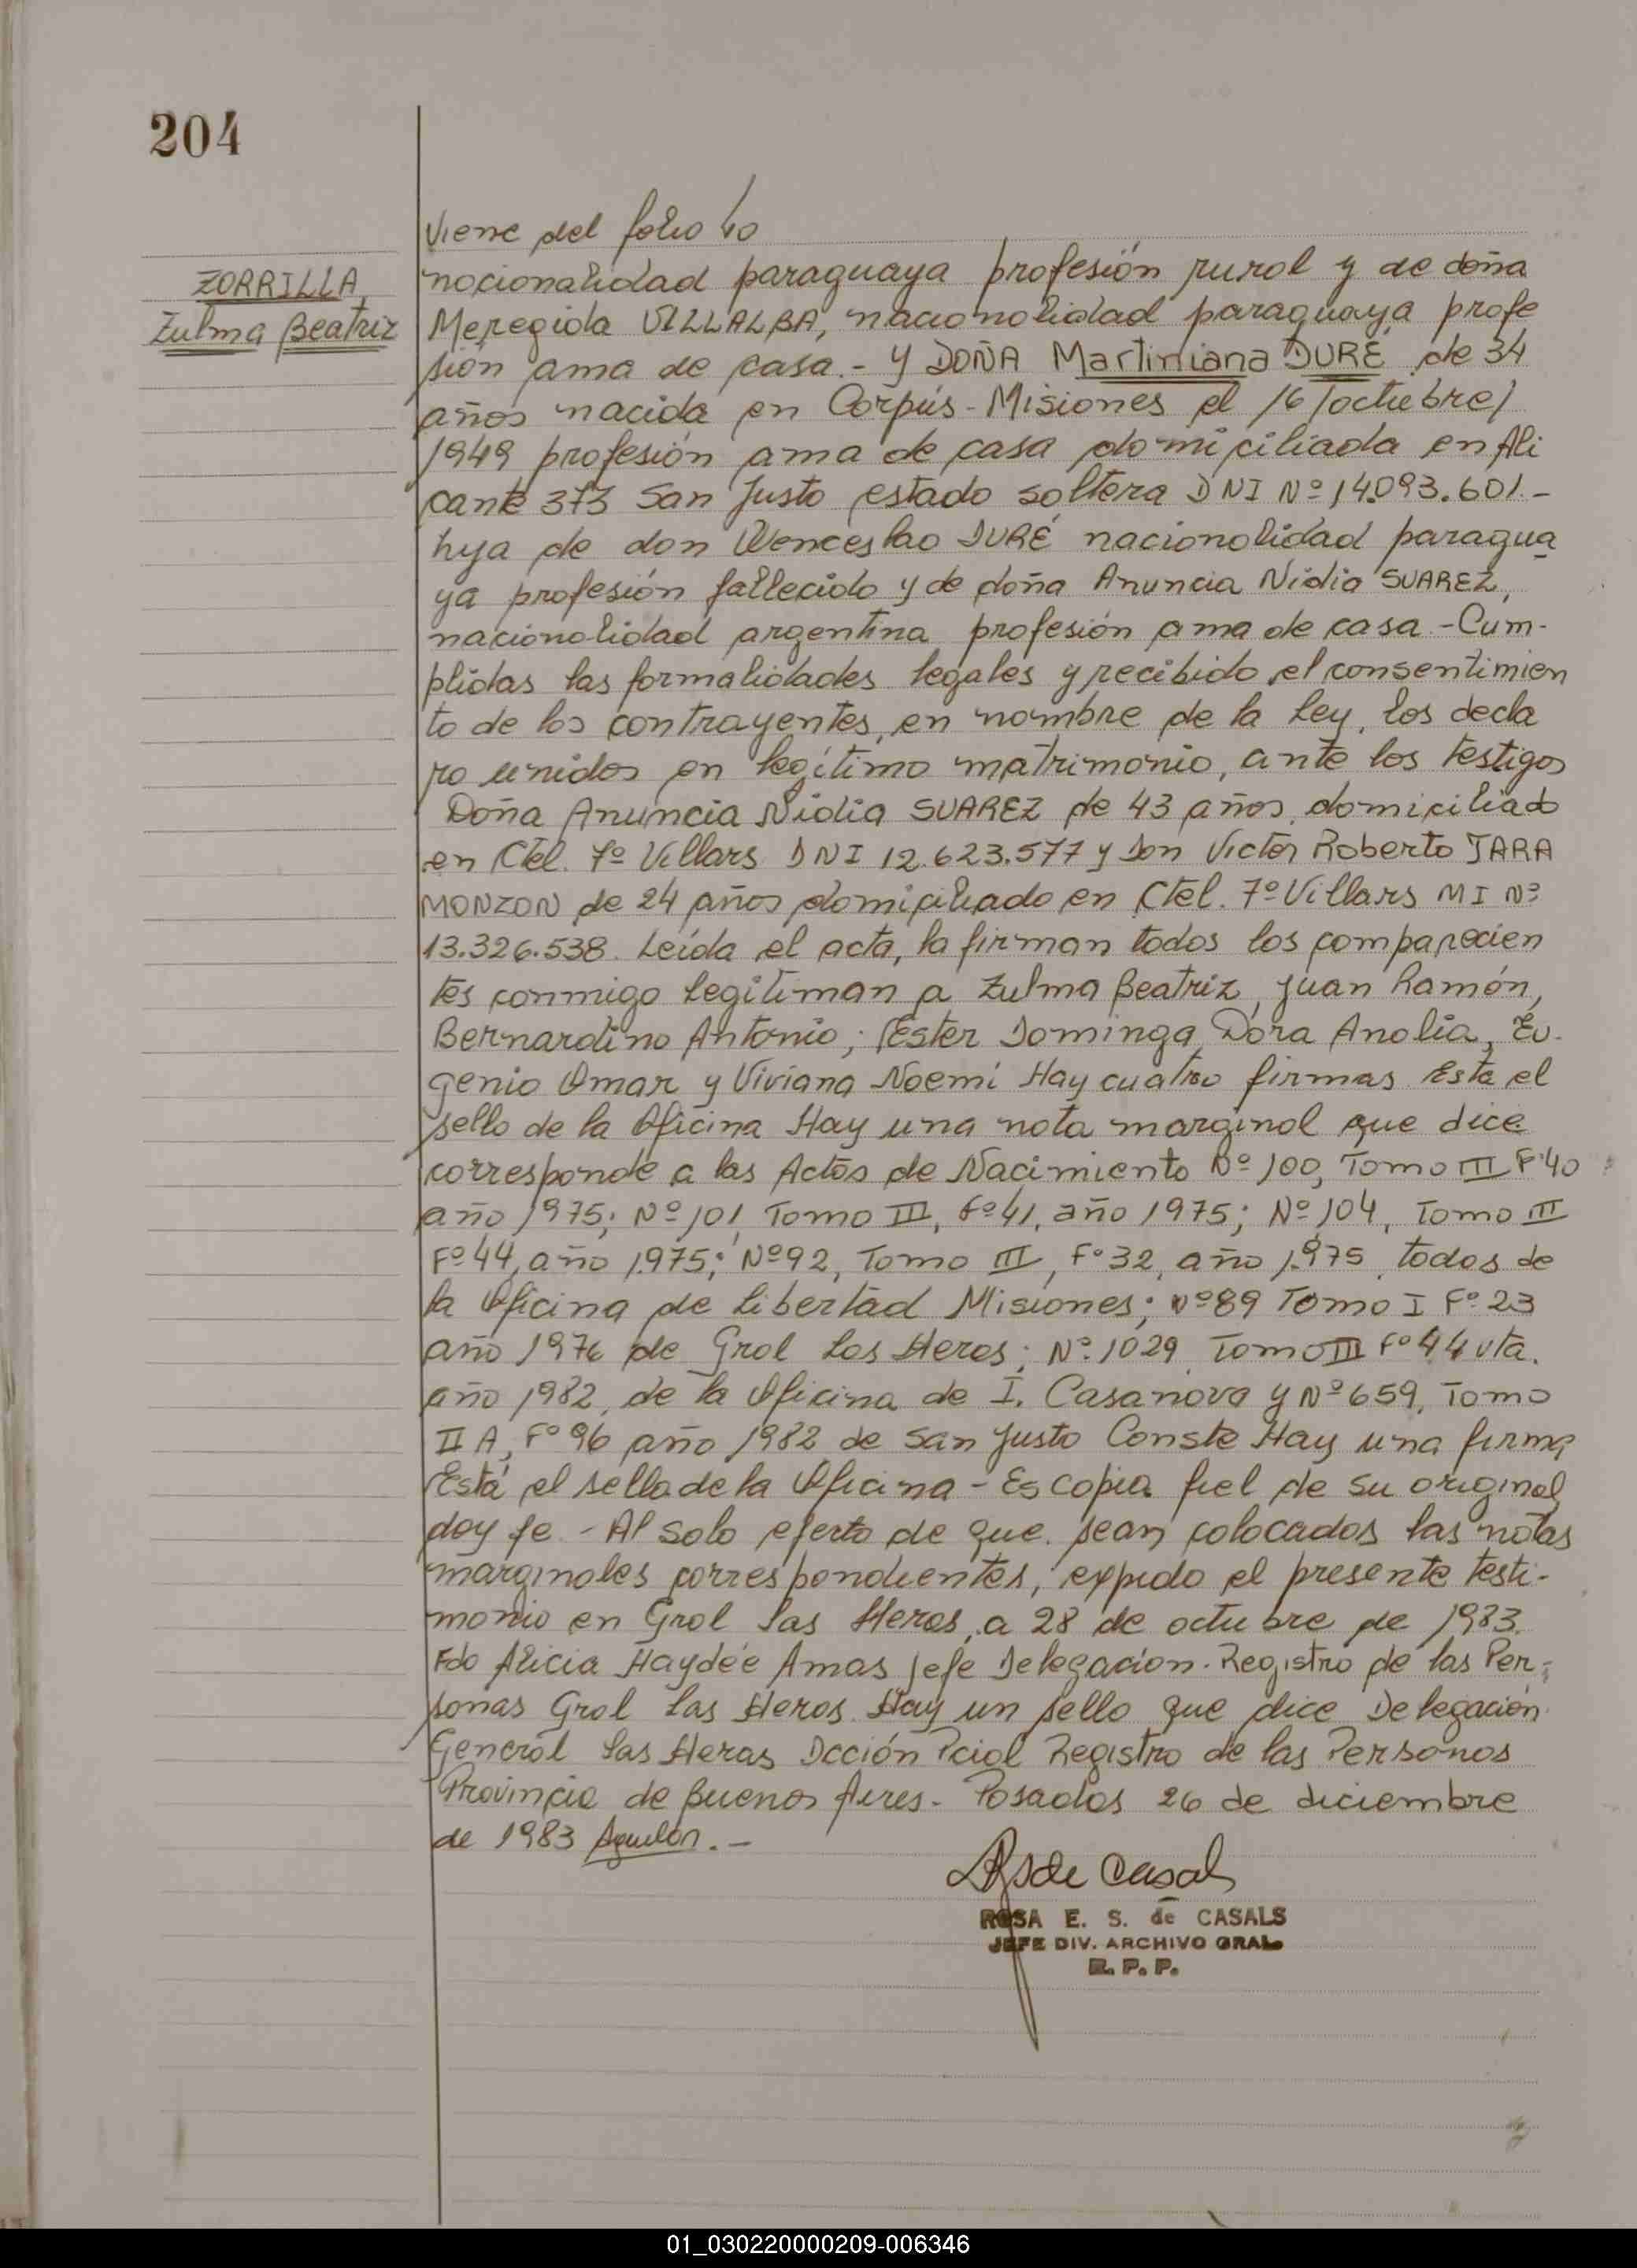 204
Viene del folio 40
ZORRILLA,
Zulma Beatriz
nacionalidad paraguaya profesión rural y de doña
Meregida VILLALBA, nacionalidad paraguaya profe
sión ama de casa.- y DOÑA Martiniana DURÉ de 34
años nacida en Corpus-Misiones el 16/octubre/
1949 profesión ama de casa domiciliada en Ali
cante 373 San Justo estado soltera DNI Nº 14.093.601.-
hija de don Wenceslao DURÉ nacionalidad paragua
ya profesión fallecido y de doña Anuncia Nidia SUAREZ,
nacionalidad argentina profesión ama de casa.-Cum-
plidas las formalidades legales y recibido el consentimien
to de los contrayentes, en nombre de la Ley, los decla
ro unidos en legítimo matrimonio, ante los testigos
Doña Anuncia Nidia SUAREZ de 43 años, domiciliado
en Ctel. 7º Villars DNI 12.623.577 y Don Victor Roberto JARA
MONZON de 24 años domiciliado en Ctel. 7º Villars MI Nº
13.326.538. Leída el acta, la firman todos los comparecien
tes conmigo legitiman a Zulma Beatriz, Juan Ramón,
Bernardino Antonio; Ester Dominga, Dora Analía, Eu-
genio Omar y Viviana Noemí Hay cuatro firmas Esta el
sello de la Oficina Hay una nota marginal que dice
corresponde a las Actas de Nacimiento Nº 100, Tomo III Fº 40
año 1975; Nº 101, Tomo III, Fº 41, año 1975; Nº 104, Tomo III
Fº 44, año 1975; Nº 92, Tomo III, Fº 32, año 1.975, todos de
la Oficina de Libertad Misiones; Nº 89 Tomo I Fº 23
año 1976 de Gral Las Heras; Nº 1029 Tomo III Fº 44 vta.
año 1982, de la Oficina de I. Casanova y Nº 659, Tomo
II A, Fº 96 año 1982 de San Justo Conste Hay una firma
Está el sello de la Oficina - Es copia fiel de su original
doy fe.- Al solo efecto de que sean colocados las notas
marginales correspondientes, expido el presente testi-
monio en Gral Las Heras, a 28 de octubre de 1983.
Fdo Alicia Haydée Amas Jefe Delegación. Registro de las Per-
sonas Gral Las Heras. Hay un sello que dice Delegación
General Las Heras Dcción Pcial Registro de las Personas
Provincia de Buenos Aires.- Posadas 26 de diciembre
de 1983 .-
de Casals
ROSA E. S. de CASALS
JEFE DIV. ARCHIVO GRAL.
R. P. P.
01_030220000209-006346